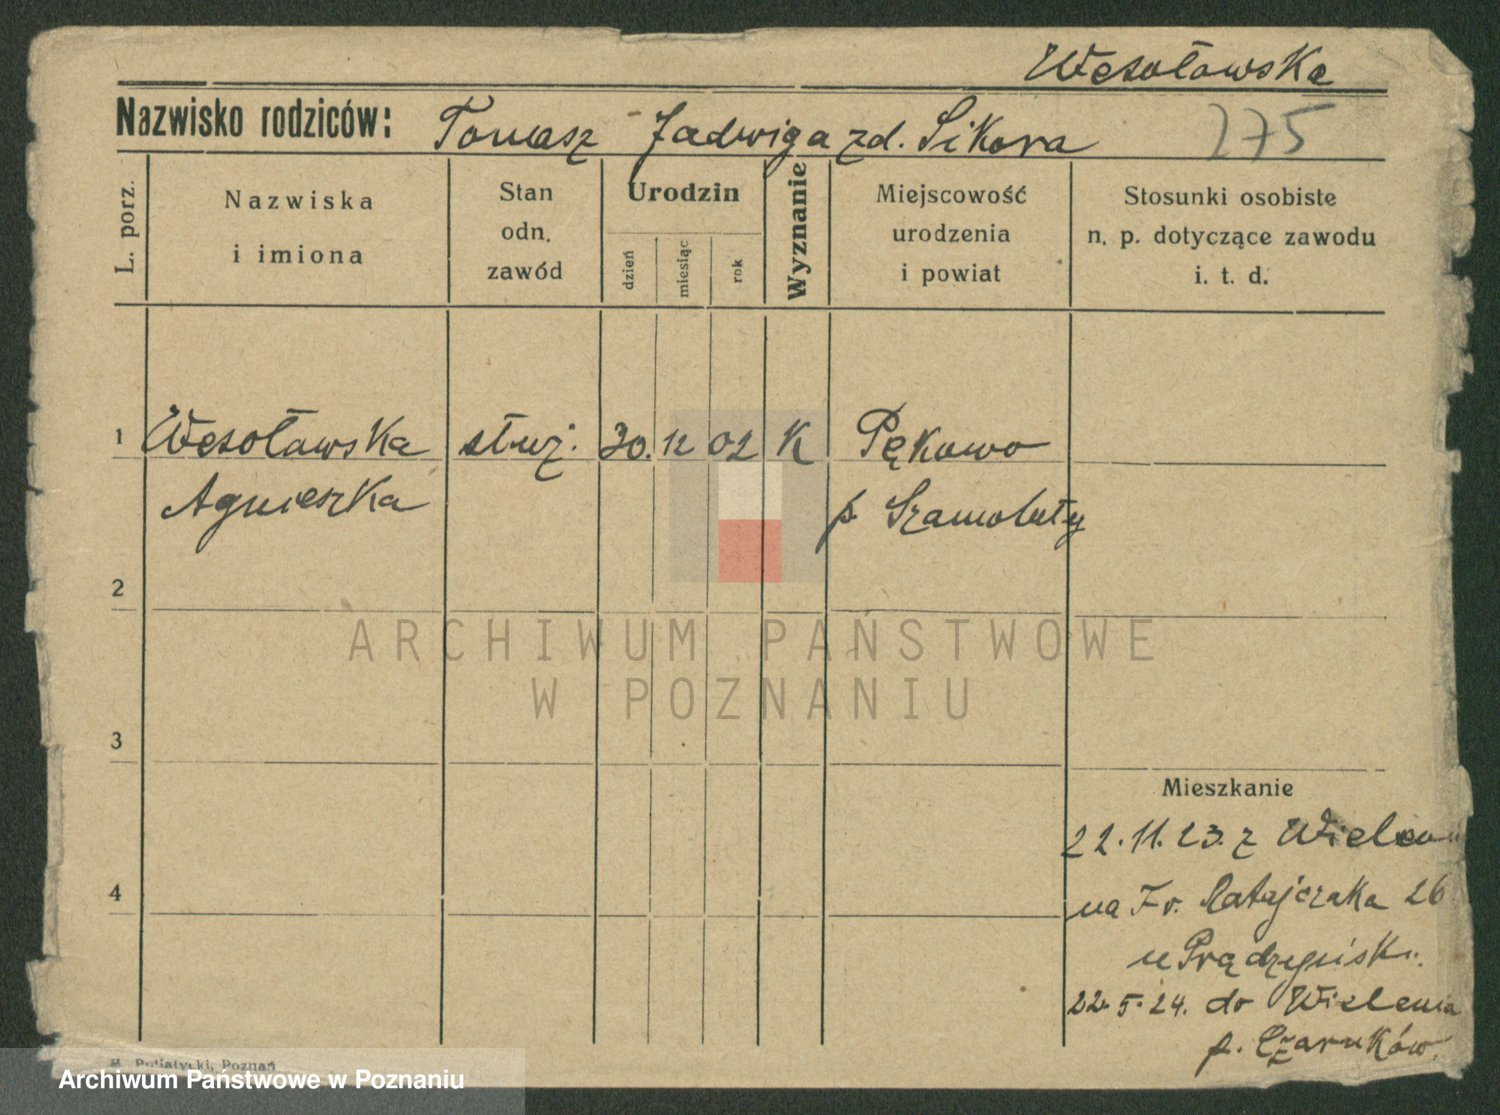 Wesołowska
Nazwisko rodziców: Tomasz - Jadwiga zd. Sikora 275
L. porz. Nazwiska i imiona Stan odn. zawód Urodzin dzień miesiąc rok Wyznanie Miejscowość urodzenia i powiat Stosunki osobiste n. p. dotyczące zawodu i. t. d.
1 Wesołowska służ. 30. 12 02 K Pękowo
Agnieszka p. Szamotuły
2
ARCHIWUM PAŃSTWOWE
W POZNANIU
3
Mieszkanie
22.11.23. z Wielenia
4
na Fr. Ratajczaka 26
u Prądzyńsk.
22.5.24. do Wielenia
p. Czarnków.
Poznań
Archiwum Państwowe w Poznaniu